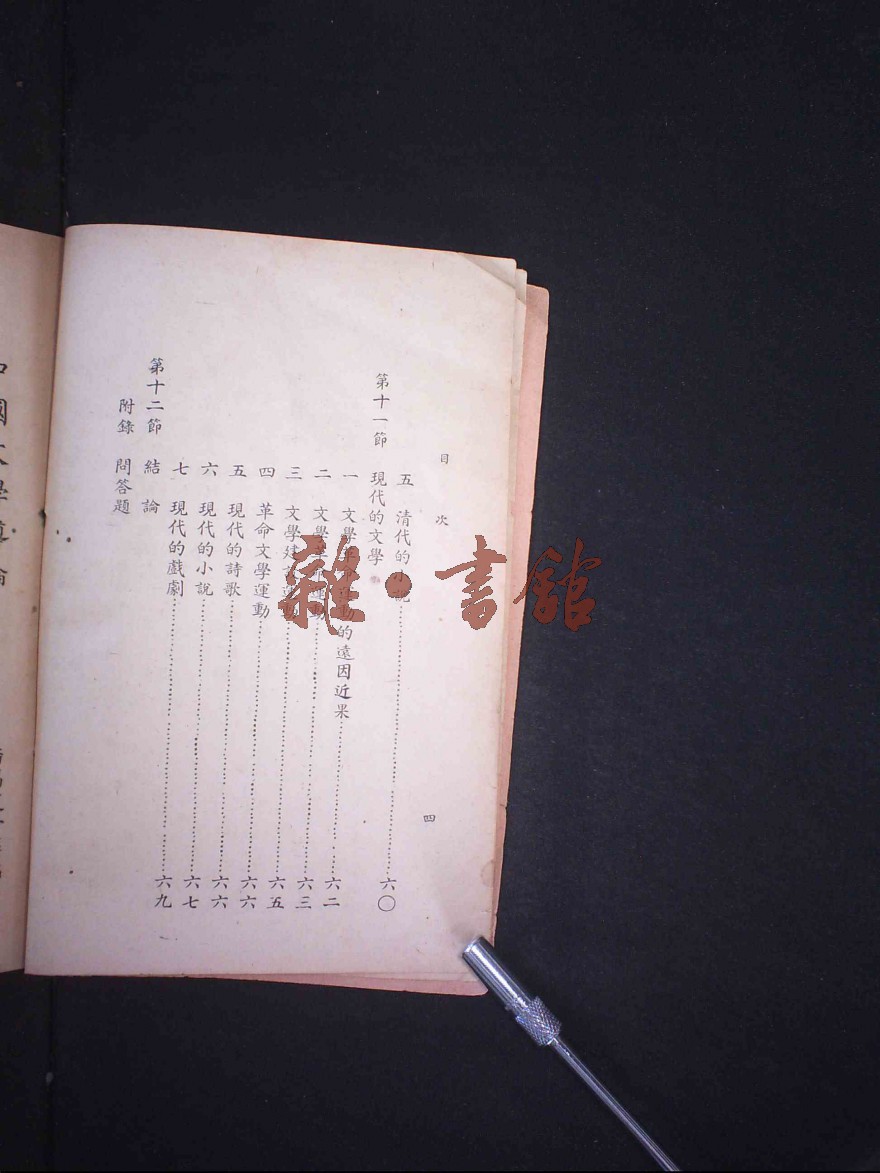 目次 四
五 清代的小說 六〇
第十一節 現代的文學
一 文學革命運動的遠因近果 六二
二 文學革命運動 六三
三 文學建設運動 六五
四 革命文學運動 六六
五 現代的詩歌 六六
六 現代的小說 六七
七 現代的戲劇 六九
第十二節 結論
附錄 問答題
中國文學導論
雜·書館